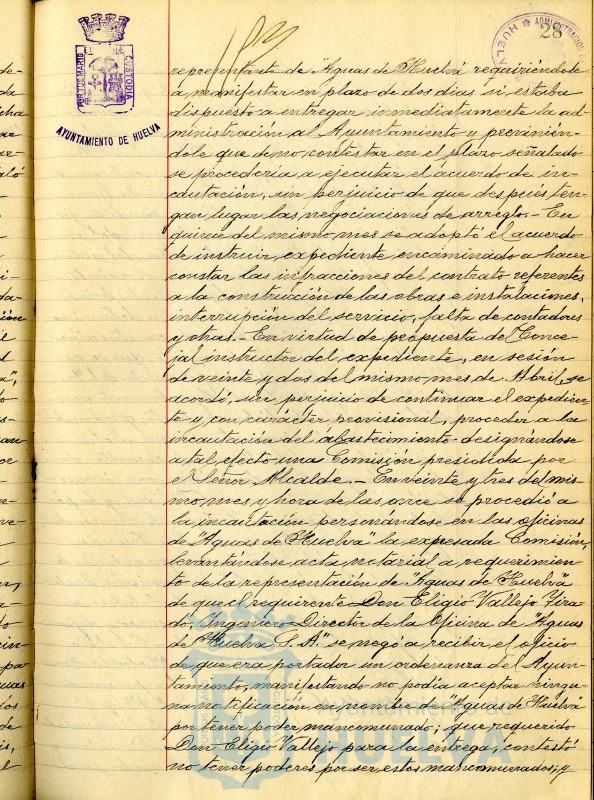 28
PORTUS MARIS ET TERRE CUSTODIA
AYUNTAMIENTO DE HUELVA
ADMINISTRACION DE
HUELVA
representante de "Aguas de Huelva" requiriéndole
á manifestar en plazo de dos dias si estaba
dispuesto a entregar inmediatamente la ad-
ministración al Ayuntamiento y previnien-
dole que de no contestar en el plazo señalado
se procederia a ejecutar el acuerdo de in-
cautación, sin perjuicio de que después ten-
gan lugar las negociaciones de arreglo.- En
quince del mismo mes se adoptó el acuerdo
de instruir expediente encaminado a hacer
constar las infracciones del contrato referentes
a la construcción de las obras e instalaciones,
interrupción del servicio, falta de contadores
y otras.- En virtud de propuesta del Conce-
jal instructor del expediente, en sesión
de veinte y dos del mismo mes de Abril, se
acordó, sin perjuicio de continuar el expedien-
te y con carácter provisional, proceder a la
incautación del abastecimiento designándose
a tal efecto una Comisión presidida por
el Señor Alcalde.- En veinte y tres del mis-
mo mes y hora de las once se procedió a
la incautación personándose en las oficinas
de "Aguas de Huelva" la expresada Comisión,
levantándose acta notarial a requerimien-
to de la representación de "Aguas de Huelva"
de que el requirente Don Eligio Vallejo
Ingeniero Director de la Oficina de "Aguas
de Huelva S.A." se negó a recibir el oficio
de que era portador un ordenanza del Ayun-
tamiento, manifestando no podía aceptar ningu-
na notificación en nombre de "Aguas de Huelva"
por tener poder mancomunado; que requerido
Don Eligio Vallejo para la entrega, contestó
no tener poderes por ser estos mancomunados; y
HUELVA